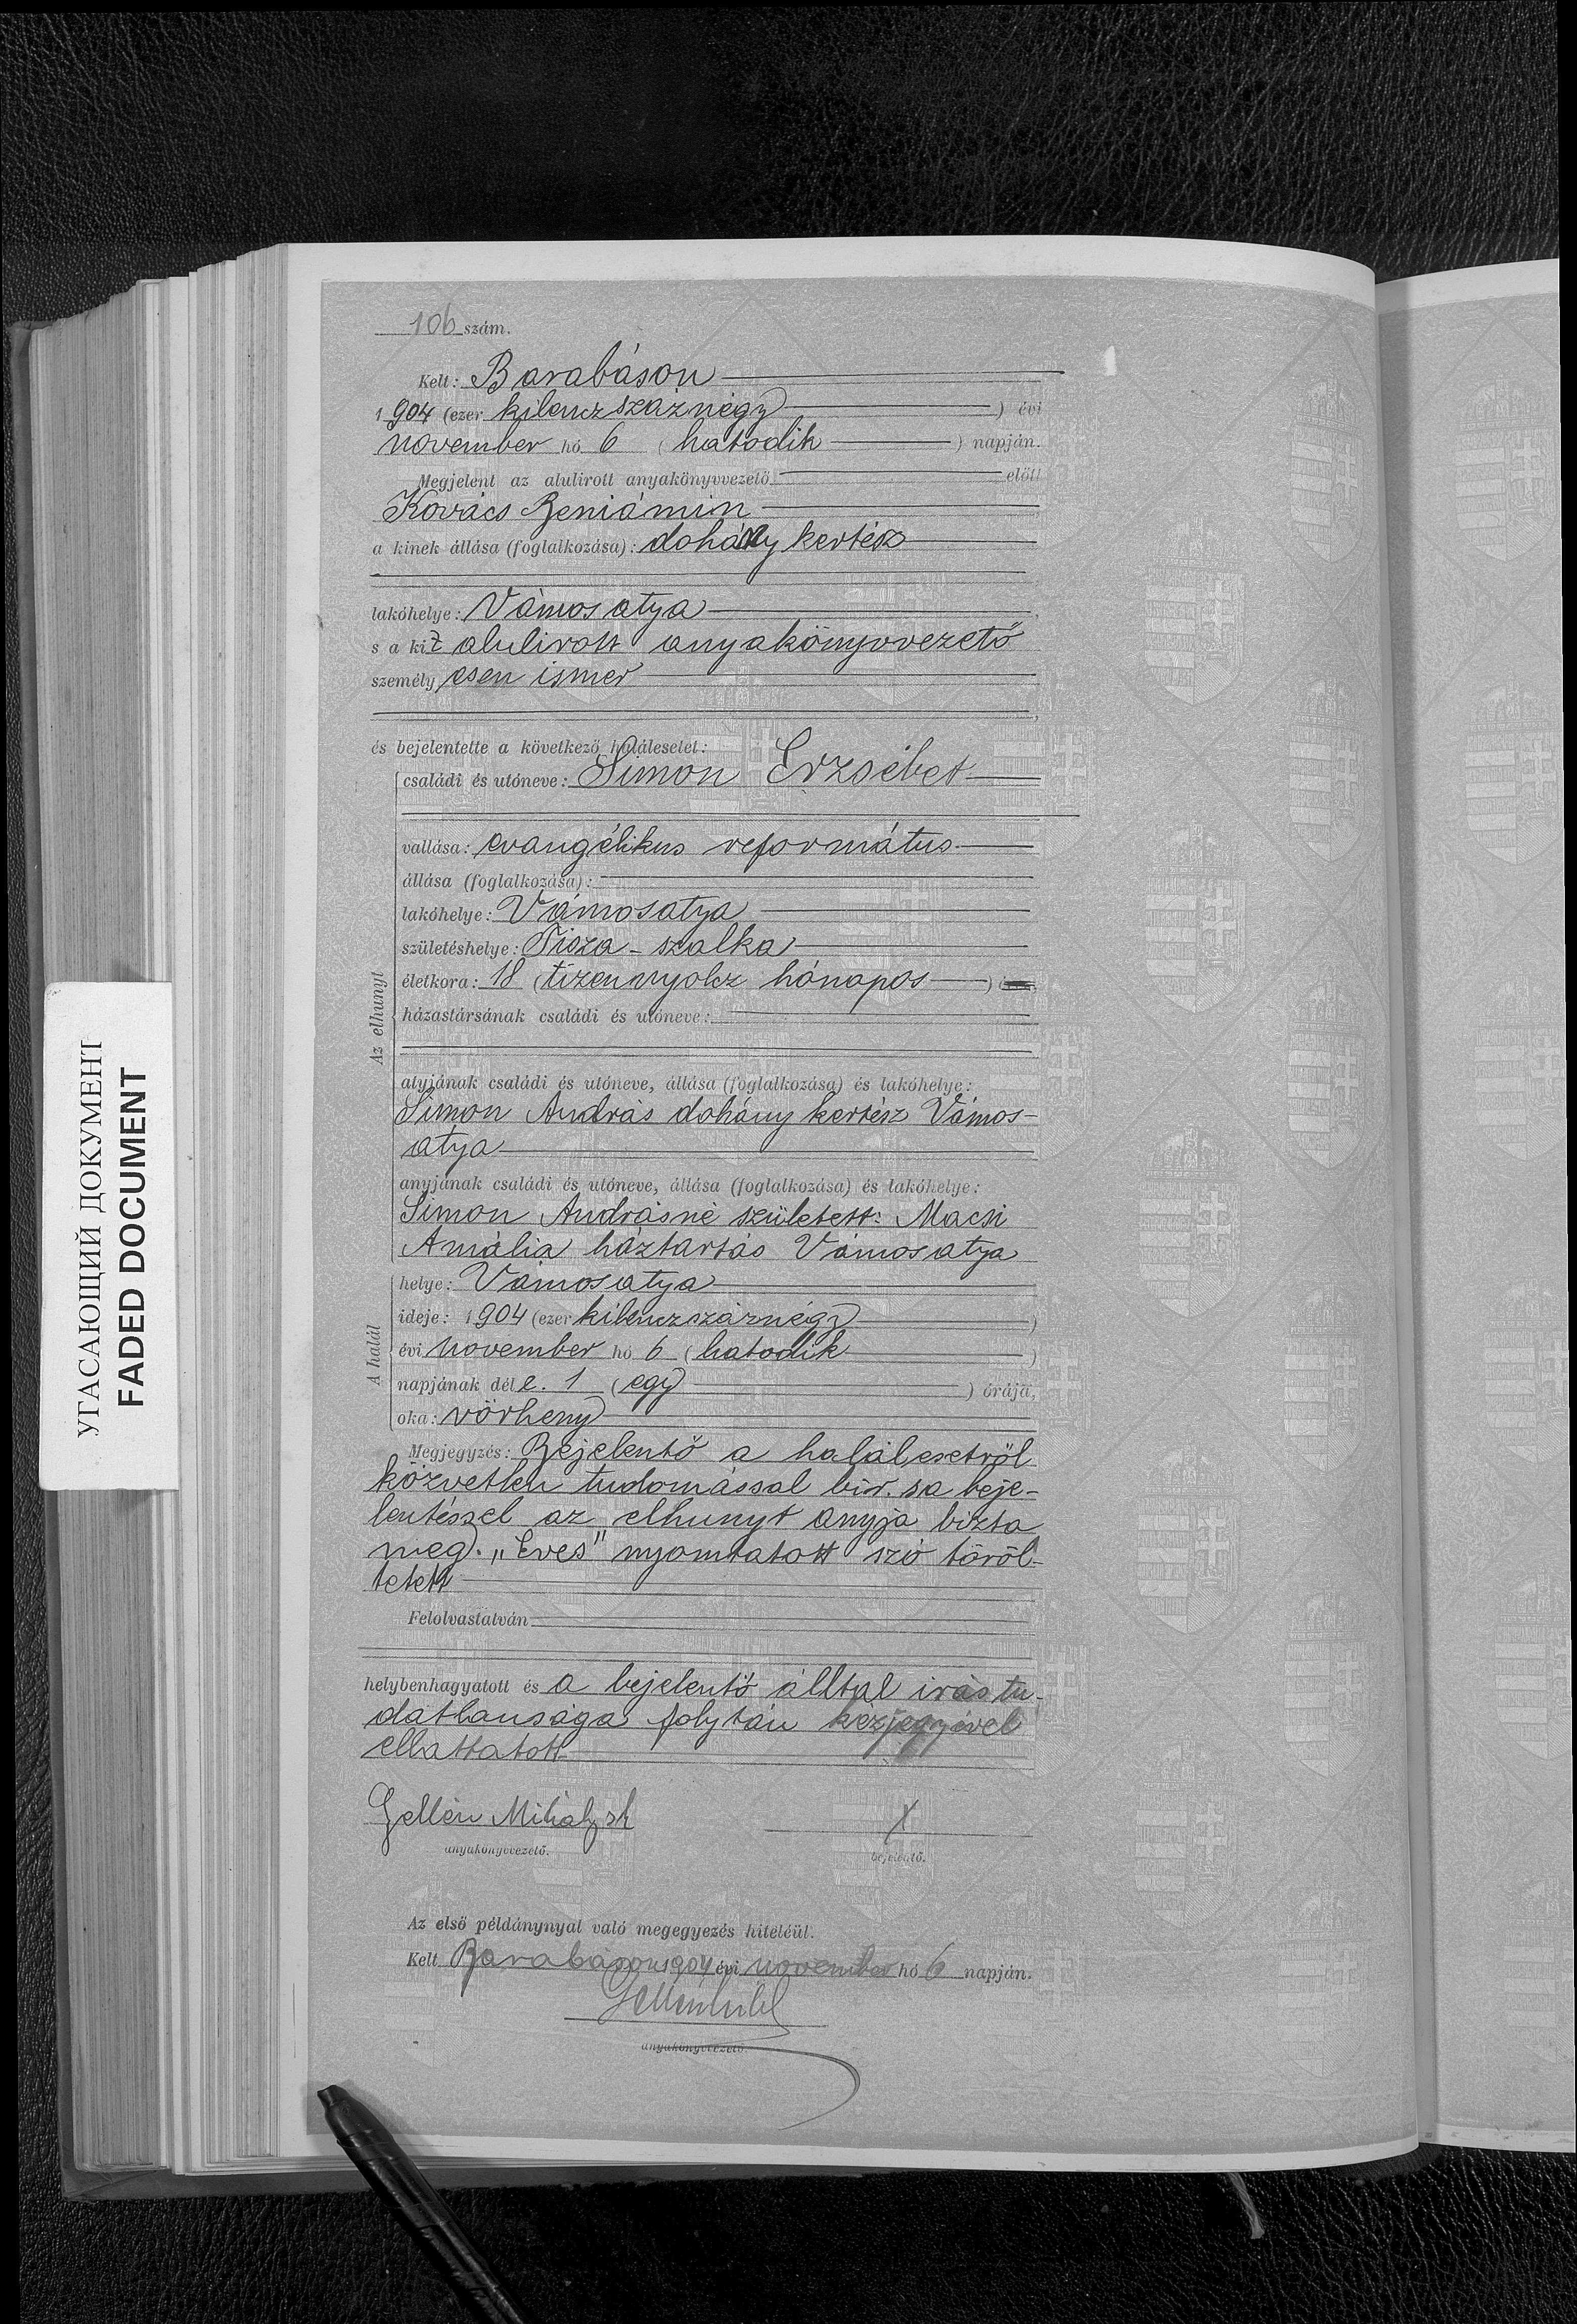 106 szám.
Kelt: Barabáson
1904 (ezer kilenczszáznégy) évi
november hó 6 (hatodik) napján.
Megjelent az alulirott anyakönyvvezető előtt
Kovács Beniámin
a kinek állása (foglalkozása): dohány kertész
lakóhelye: Vámosatya
s a kit alulirott anyakönyvvezető
személyesen ismer
és bejelentette a következő halálesetet:
családi és utóneve: Simon Erzsébet
vallása: evangélikus református
állása (foglalkozása):
lakóhelye: Vámosatya
születéshelye: Tisza-szalka
életkora: 18 (tizennyolcz hónapos)
házastársának családi és utóneve:
Az elhunyt
atyjának családi és utóneve, állása (foglalkozása) és lakóhelye:
Simon András dohány kertész Vámos-
atya
anyjának családi és utóneve, állása (foglalkozása) és lakóhelye:
Simon Andrásné született: Macsi
Amália háztartás Vámosatya
A halál
helye: Vámosatya
ideje: 1904 (ezer kilenczszáznégy)
évi november hó 6 (hatodik)
napjának dél e. 1 (egy) órája,
oka: vörheny
Megjegyzés: Bejelentő a halálesetről
közvetlen tudomással bir. s a beje-
lentéssel az elhunyt anyja bizta
meg. „Éves" nyomtatott szó töröl-
tetett
Felolvastatván
helybenhagyatott és a bejelentő álltal irástu-
datlansága folytán kézjegyével
ellattatott
Gellén Mihály sk
anyakönyvvezető.
X
bejelentő.
Az első példánynyal való megegyezés hiteléül.
Kelt Barabáson 1904 évi november hó 6 napján.
anyakönyvvezető.
УГАСАЮЩИЙ ДОКУМЕНТ
FADED DOCUMENT